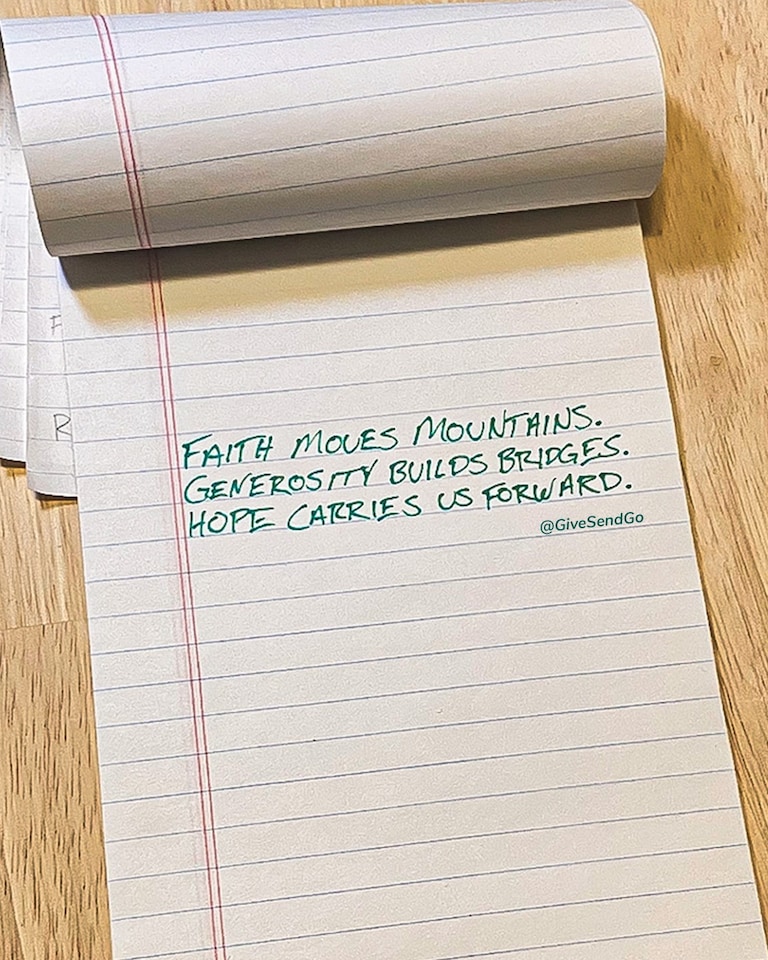 F
R
FAITH MOVES MOUNTAINS.
GENEROSITY BUILDS BRIDGES.
HOPE CARRIES US FORWARD.
@GiveSendGo